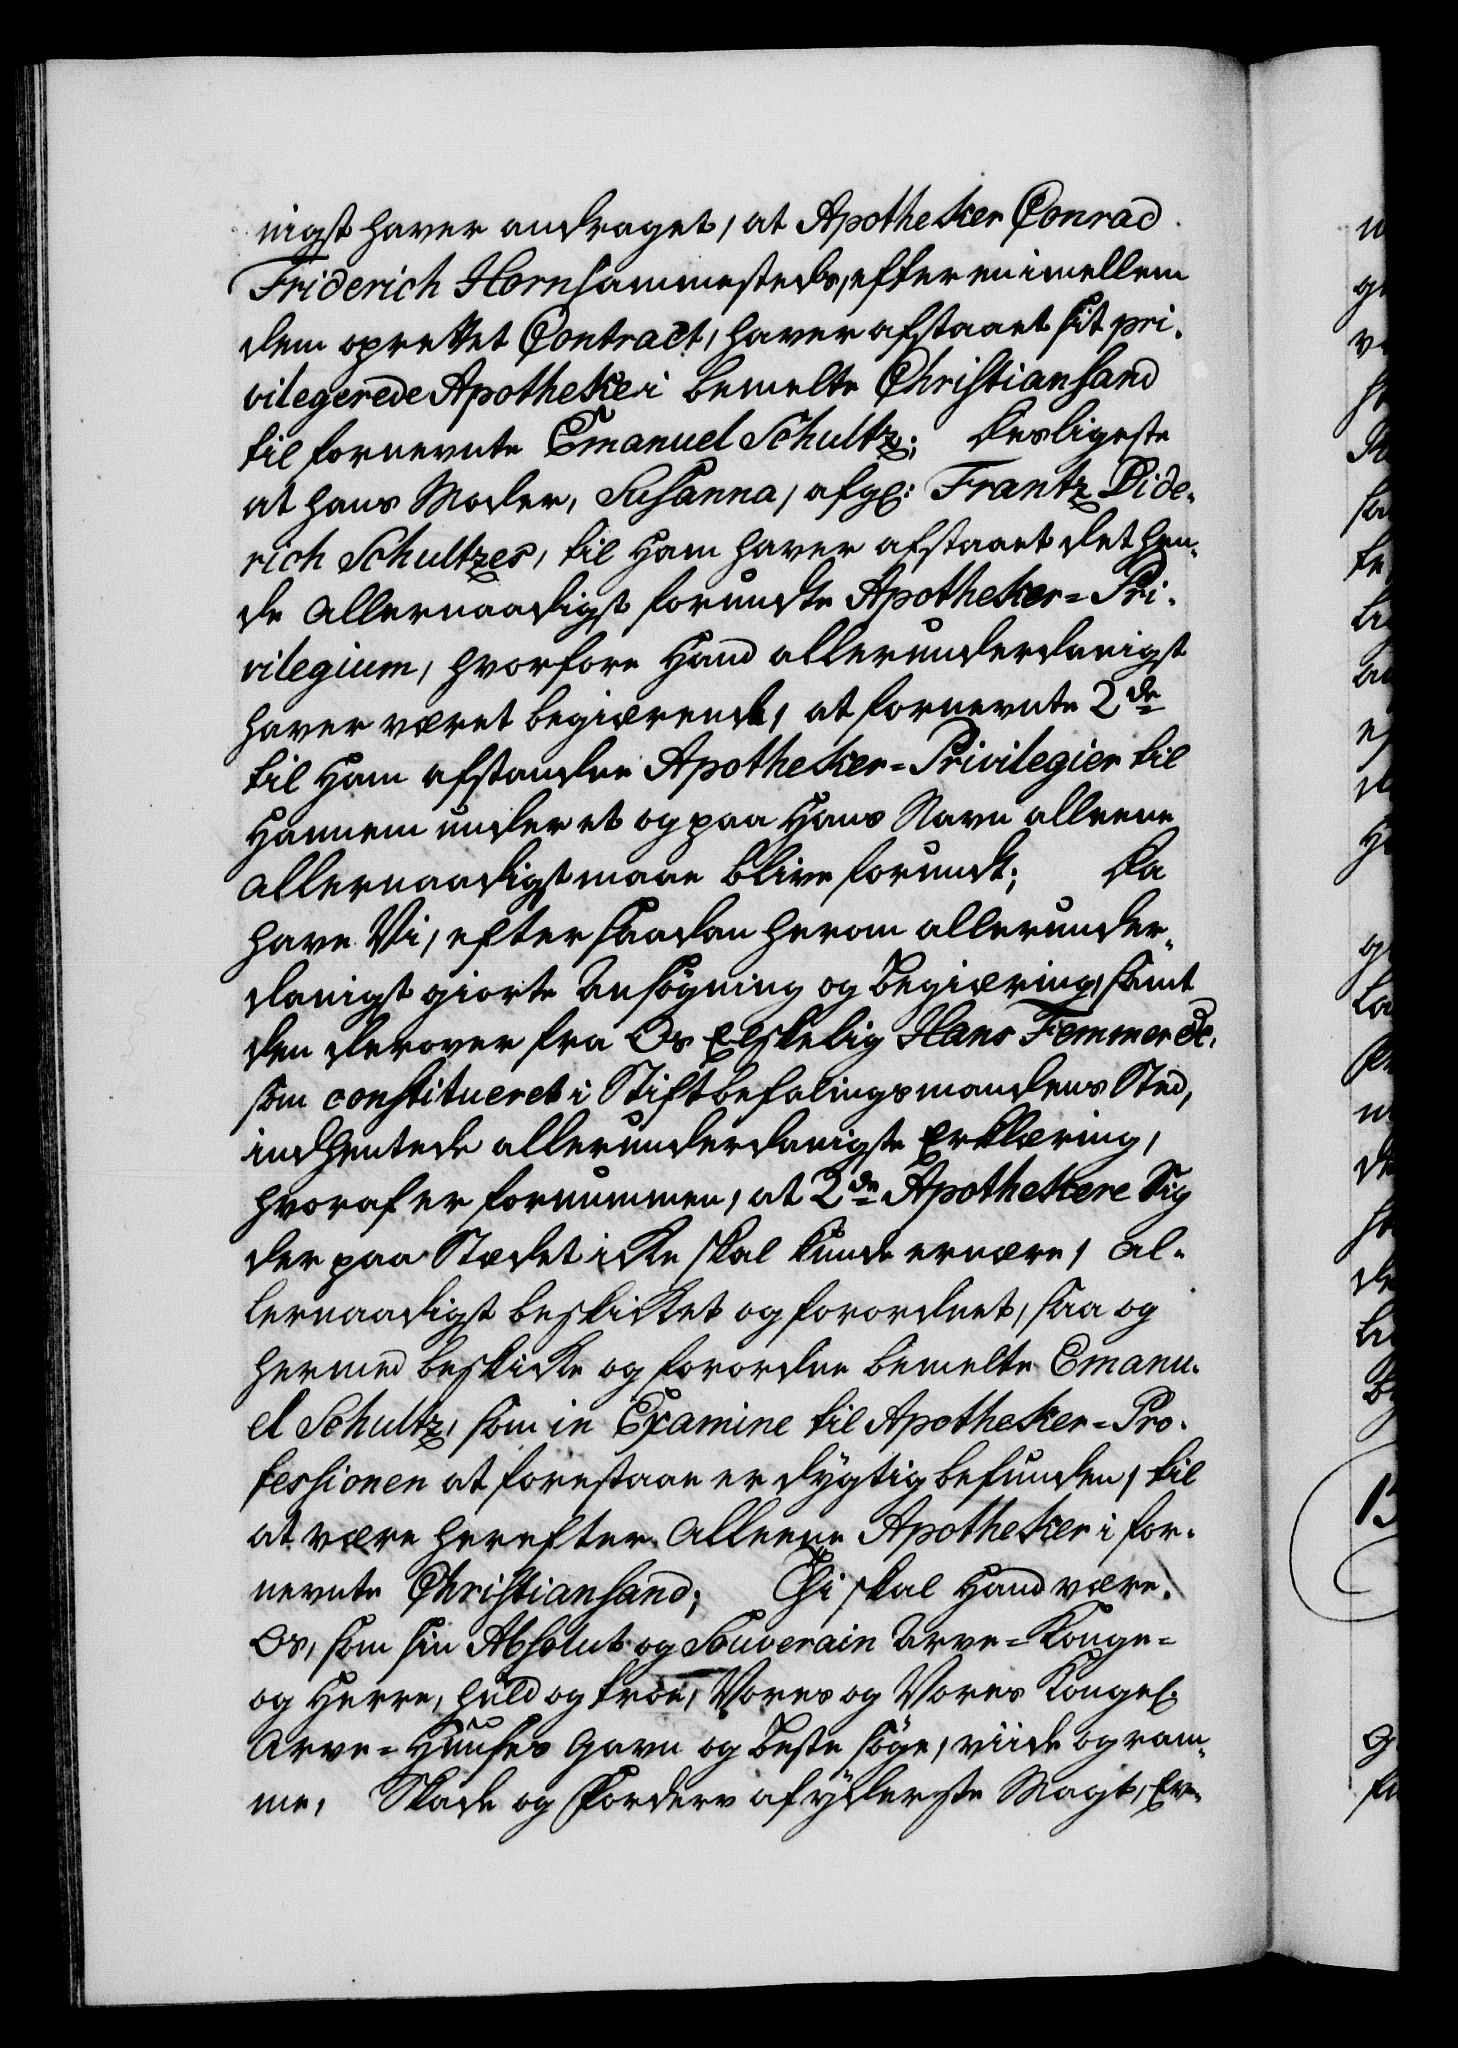 nigst haver andraget, at Apotheker Conrad
Friderich Horn sammesteds, efter en imellem
dem oprettet Contract, haver afstaaet sit pri-
vilegerede Apotheke i bemelte Christiansand
til fornevnte Emanuel Schultz; desligeste
at hans Moder, Susanna, afg: Frantz Dide-
rich Schultzes, til Ham haver afstaaet det hen-
de Allernaadigst forundte Apotheker-Pri-
vilegium, hvorfore Hand allerunderdanigst
haver været begiærende, at fornevnte 2de
til Ham afstandne Apotheker-Privilegier til
Hannem under et og paa Hans Navn alleene
Allernaadigst maae blive forundt; Da
have Vi, efter saadan herom allerunder-
danigst giorte Ansøgning og Begiæring, samt
den derover fra Os Elskelig Hans Femmer &c.
som constitueret i Stiftbefalingsmandens Sted,
indhentede allerunderdanigste Erklæring,
hvoraf er fornummen, at 2de Apothekere Sig
der paa Stædet icke skal kunde ernære, Al-
lernaadigst beskicket og forordnet, saa og
hermed beskicke og forordne bemelte Emanu-
el Schultz, som in Examine til Apotheker-Pro-
fessionen at forestaae er dygtig befunden, til
at være herefter Alleene Apotheker i for-
nevnte Christiansand; Thi skal Hand være
Os, som sin Absolut og Souverain Arve-Konge-
og Herre, huld og troe, Vores og Vores Kongel.
Arve-Huuses Gavn og Beste søge, viide og ram-
me, Skade og Forderv af yderste Magt, Ev-